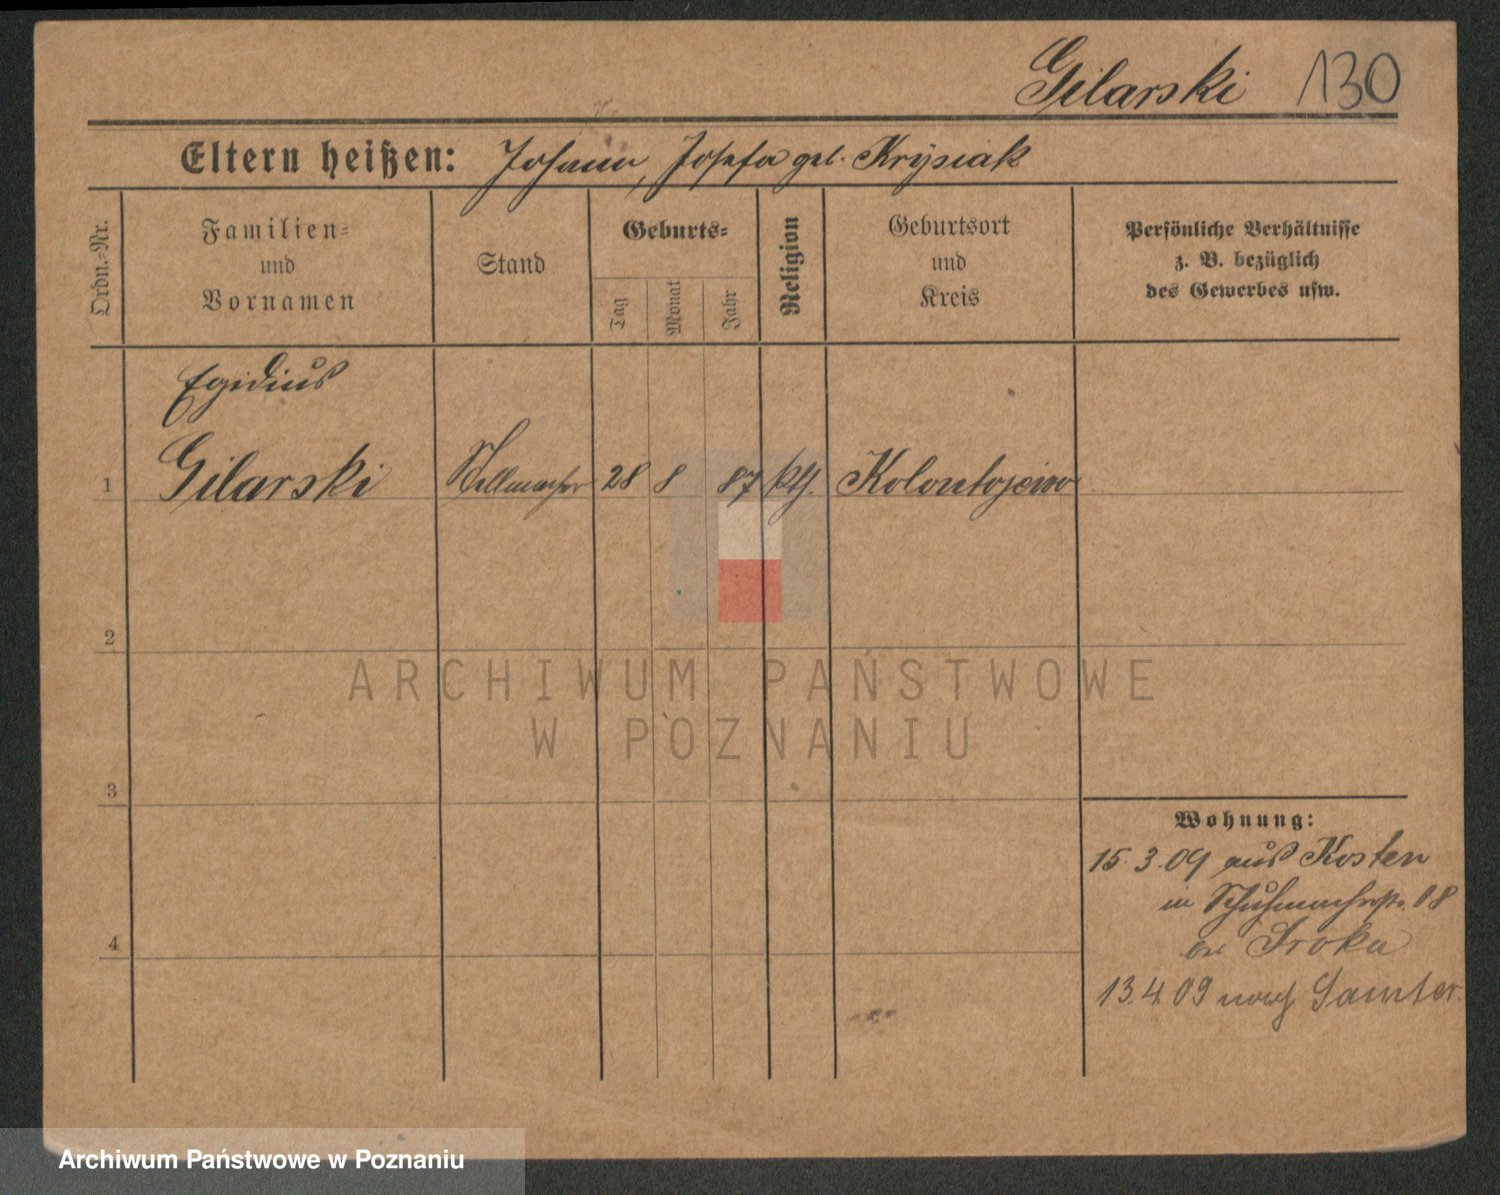 Gilarski 130
Eltern heißen: Johann, Josefa geb. Krysiak
Ordn.-Nr.
Familien-
und
Vornamen
Stand
Geburts-
Tag
Monat
Jahr
Religion
Geburtsort
und
Kreis
Persönliche Verhältnisse
z. B. bezüglich
des Gewerbes usw.
Egidius
1 Gilarski Stellmacher 28 8 87 kth. Kolontajewo
2
ARCHIWUM PAŃSTWOWE
W POZNANIU
3
Wohnung:
15.3.09 aus Kosten
in Schuhmacherstr. 18
bei Sroka
4
13.4.09 nach Samter.
Archiwum Państwowe w Poznaniu